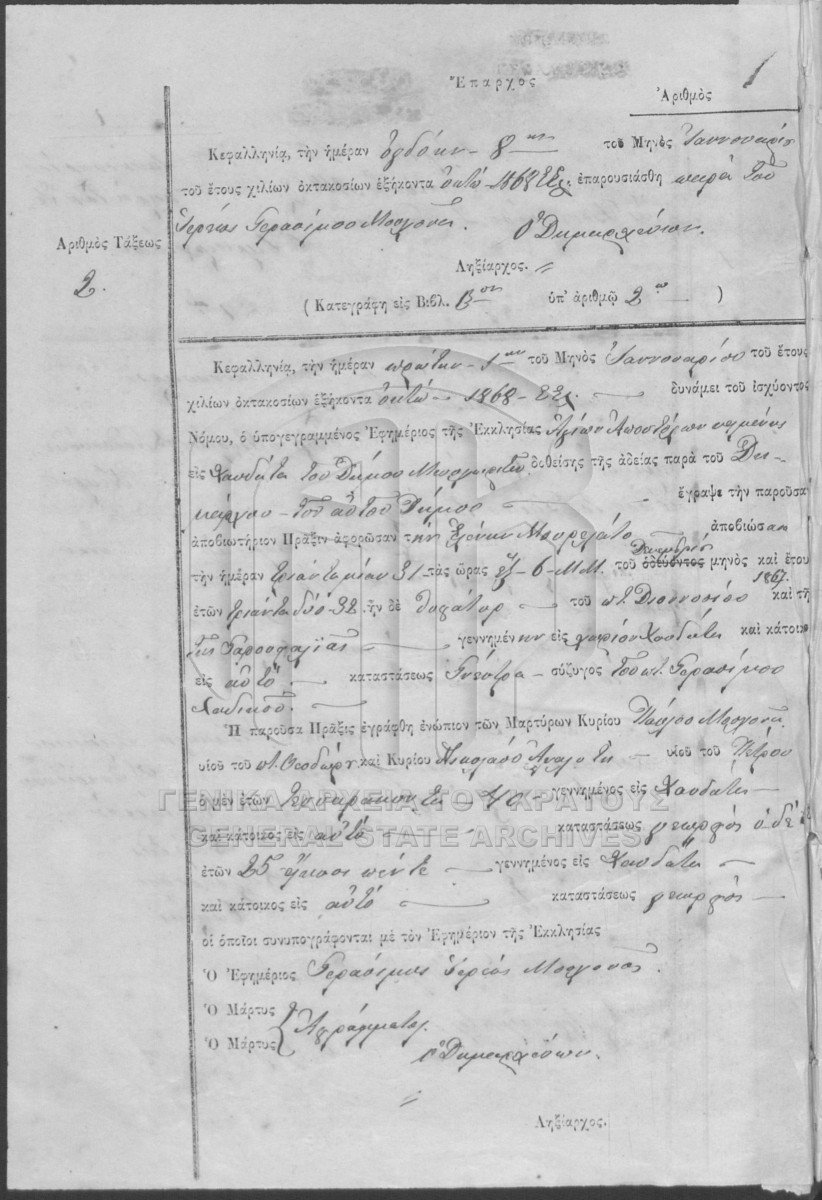 Ἔπαρχος
Ἀριθμὸς 1
Κεφαλληνίᾳ, τὴν ἡμέραν ὀγδόην - 8 ην τοῦ Μηνὸς Ἰαννουαρίου
τοῦ ἔτους χιλίων ὀκτακοσίων ἑξήκοντα ὀκτώ - 1868 ΕΕλ. ἐπαρουσιάσθη παρὰ τοῦ
Ἱερέως Γερασίμου
Ὁ Δημαρχεύων.
Ἀριθμὸς Τάξεως
2.
Ληξίαρχος.
( Κατεγράφη εἰς Βιβλ. Βον ὑπ' ἀριθμῷ 2 ω )
Κεφαλληνίᾳ, τὴν ἡμέραν πρώτην - 1 ην τοῦ Μηνὸς Ἰαννουαρίου τοῦ ἔτους
χιλίων ὀκτακοσίων ἑξήκοντα ὀκτώ - 1868 - ΕΕλ. δυνάμει τοῦ ἰσχύοντος
Νόμου, ὁ ὑπογεγραμμένος Ἐφημέριος τῆς Ἐκκλησίας Ἁγίων Ἀποστόλων κειμένης
εἰς Χαυδάτα τοῦ Δήμου δοθείσης τῆς ἀδείας παρὰ τοῦ Δη-
μάρχου - τοῦ αὐτοῦ Δήμου ἔγραψε τὴν παροῦσα
ἀποβιωτήριον Πρᾶξιν ἀφορῶσαν τὴν Ἑλένην ἀποβιώσαν
Δεκεμβρίου
τὴν ἡμέραν τριάντα μίαν 31 τὰς ὥρας ἓξ - 6 - Μ.Μ. τοῦ ὁδεύοντος μηνὸς καὶ ἔτου
1867.
ἐτῶν τριάντα δύο - 32. ἦν δὲ θυγάτηρ τοῦ ποτ. Διονυσίου καὶ τῆ
ς Γαρουφαλιᾶς γεννημένην εἰς χωρίον Χαυδάτα καὶ κάτοικο
εἰς αὐτό καταστάσεως Γνέστρα - σύζυγος τοῦ ποτ. Γερασίμου
Ἡ παροῦσα Πρᾶξις ἐγράφθη ἐνώπιον τῶν Μαρτύρων Κυρίου Παύλου
υἱοῦ τοῦ ποτ. Θεοδώρου καὶ Κυρίου Νικολάου υἱοῦ τοῦ Πέτρου
ὁ μὲν ἐτῶν τεσσαράκοντα 40 γεννημένος εἰς Χαυδάτα -
καὶ κάτοικος εἰς αὐτό καταστάσεως γεωργός ὁ δὲ
ἐτῶν 25 εἴκοσι πέντε γεννημένος εἰς Χαυδάτα
καὶ κάτοικος εἰς αὐτό καταστάσεως γεωργός -
οἱ ὁποῖοι συνυπογράφονται μὲ τὸν Ἐφημέριον τῆς Ἐκκλησίας
Ὁ Ἐφημέριος Γεράσιμος Ἱερεύς
Ὁ Μάρτυς
Ὁ Μάρτυς } Ἀγράμματοι.
Ὁ Δημαρχεύων.
Ληξίαρχος.
ΓΕΝΙΚΑ ΑΡΧΕΙΑ ΤΟΥ ΚΡΑΤΟΥΣ
GENERAL STATE ARCHIVES